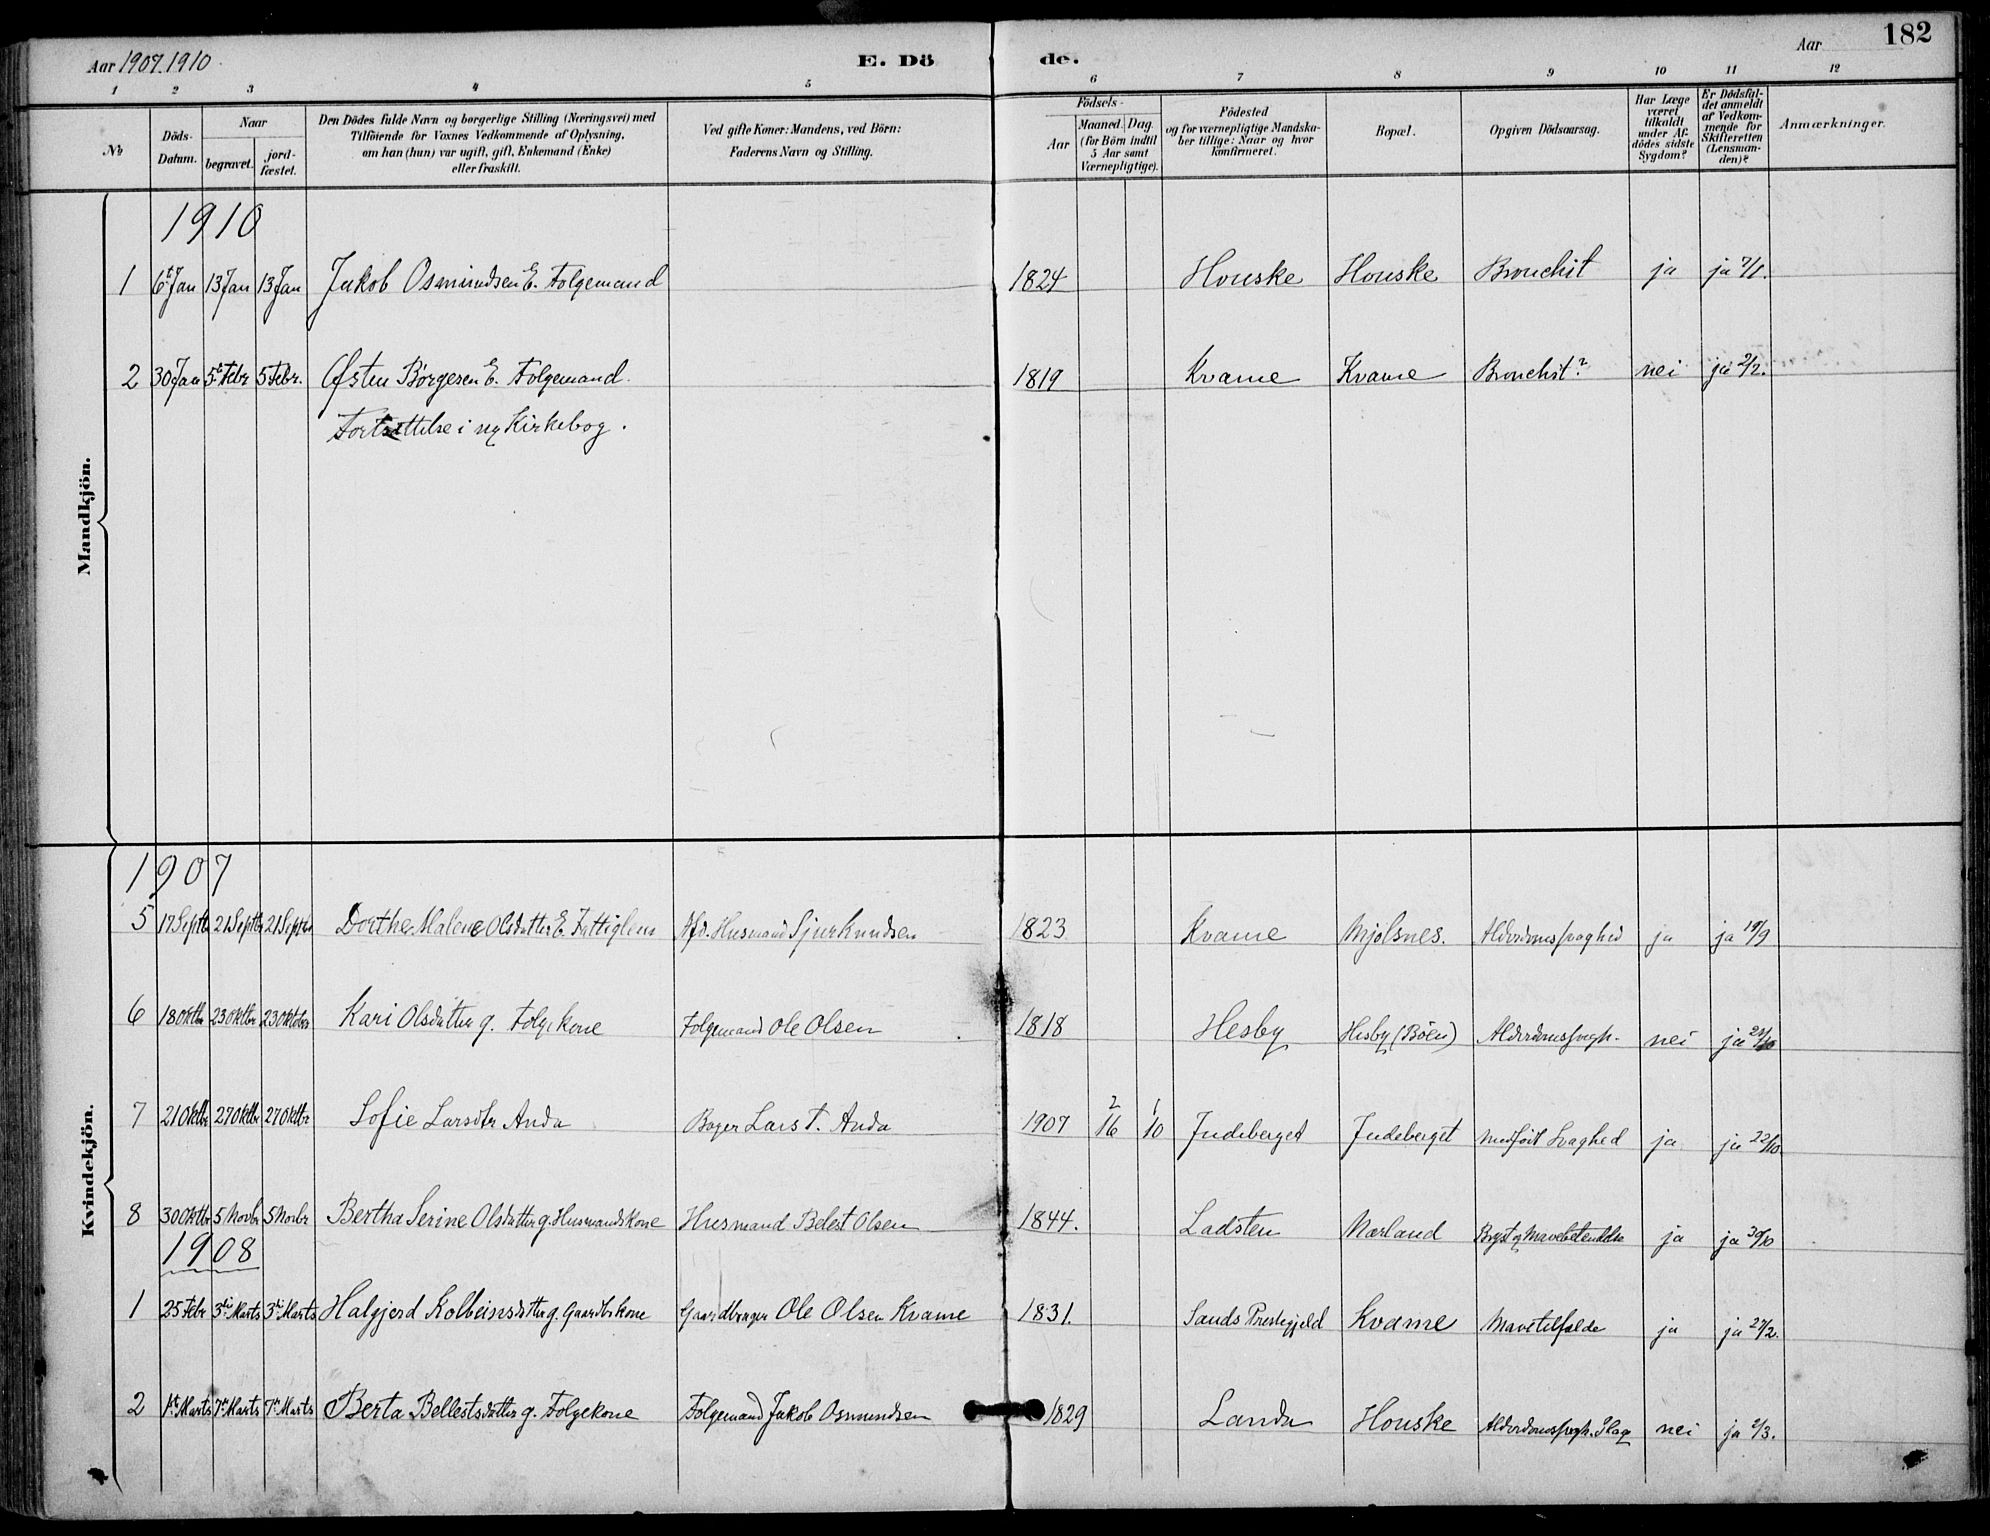 Aar 1907.1910
E. Dö
de.
Aar
182
1 2 3 4 5 6 7 8 9 10 11 12
No
Döds-Datum.
Naar
begravet.
jord-fæstet.
Den Dödes fulde Navn og borgerlige Stilling (Næringsvei) med
Tilföiende for Voxnes Vedkommende af Oplysning,
om han (hun) var ugift, gift, Enkemand (Enke)
eller fraskilt.
Ved gifte Koner: Mandens, ved Börn:
Faderens Navn og Stilling.
Födsels-
Aar
Maaned. Dag.
(for Börn indtil
5 Aar samt
Værnepligtige).
Födested
og for værnepligtige Mandska-
ber tillige: Naar og hvor
konfirmeret.
Bopæl.
Opgiven Dödsaarsag.
Har Læge
været
tilkaldt
under Af-
dödes sidste
Sygdom?
Er Dödsfal-
det anmeldt
af Vedkom-
mende for
Skifteretten
(Lensman-
den)?
Anmærkninger.
Mandkjön.
1910
1 6t Jan 13 Jan 13 Jan Jakob Osmundsen E. Folgemand 1824 Houske Houske Bronchit ja ja 7/1.
2 30 Jan 5t Febr 5 Febr. Østen Børgesen E. Folgemand. 1819 Kvame Kvame Bronchit? nei ja 2/2.
Fortsættelse i ny Kirkebog.
Kvindekjön.
1907
5 17 Septb 21 Septbr 21 Septbr Dorthe Malene Olsdatter E. Fattiglem Afd. Husmand Sjur Knudsen 1823 Kvame Mjølsnes. Alderdomssvaghed ja ja 19/9
6 18 Oktbr 23 Oktbr 23 Oktobr Kari Olsdatter g. Folgekone Folgemand Ole Olsen 1818 Hesby Hesby (Bøen) Alderdomssvagh. nei ja
7 21 Oktbr 27 Oktbr 27 Oktbr Sofie Larsdtr Anda Bager Lars T. Anda 1907 2/16 1/10 Judeberget Judeberget medfødt Svaghed ja ja 22/10.
8 30 Oktbr 5 Novbr 5 Novbr Bertha Serine Olsdatter g. Husmandskone Husmand Belest Olsen 1844. Ladsten Nærland Bryst og Mavebetændelse ja ja 30/10
1908
1 25 Febr 3die Marts 3die Marts Halgjerd Kolbeinsdatter g. Gaardbrkone Gaardbruger Ole Olsen Kvame 1831. Sands Prestegjeld Kvame Mavetilfælde ja ja 27/2.
2 1st Marts 7de Marts 7de Marts Berta Bellestsdatter g. Folgekone Folgemand Jakob Osmundsen 1829 Landa Houske Alderdomssvagh. Slag nei ja 2/3.